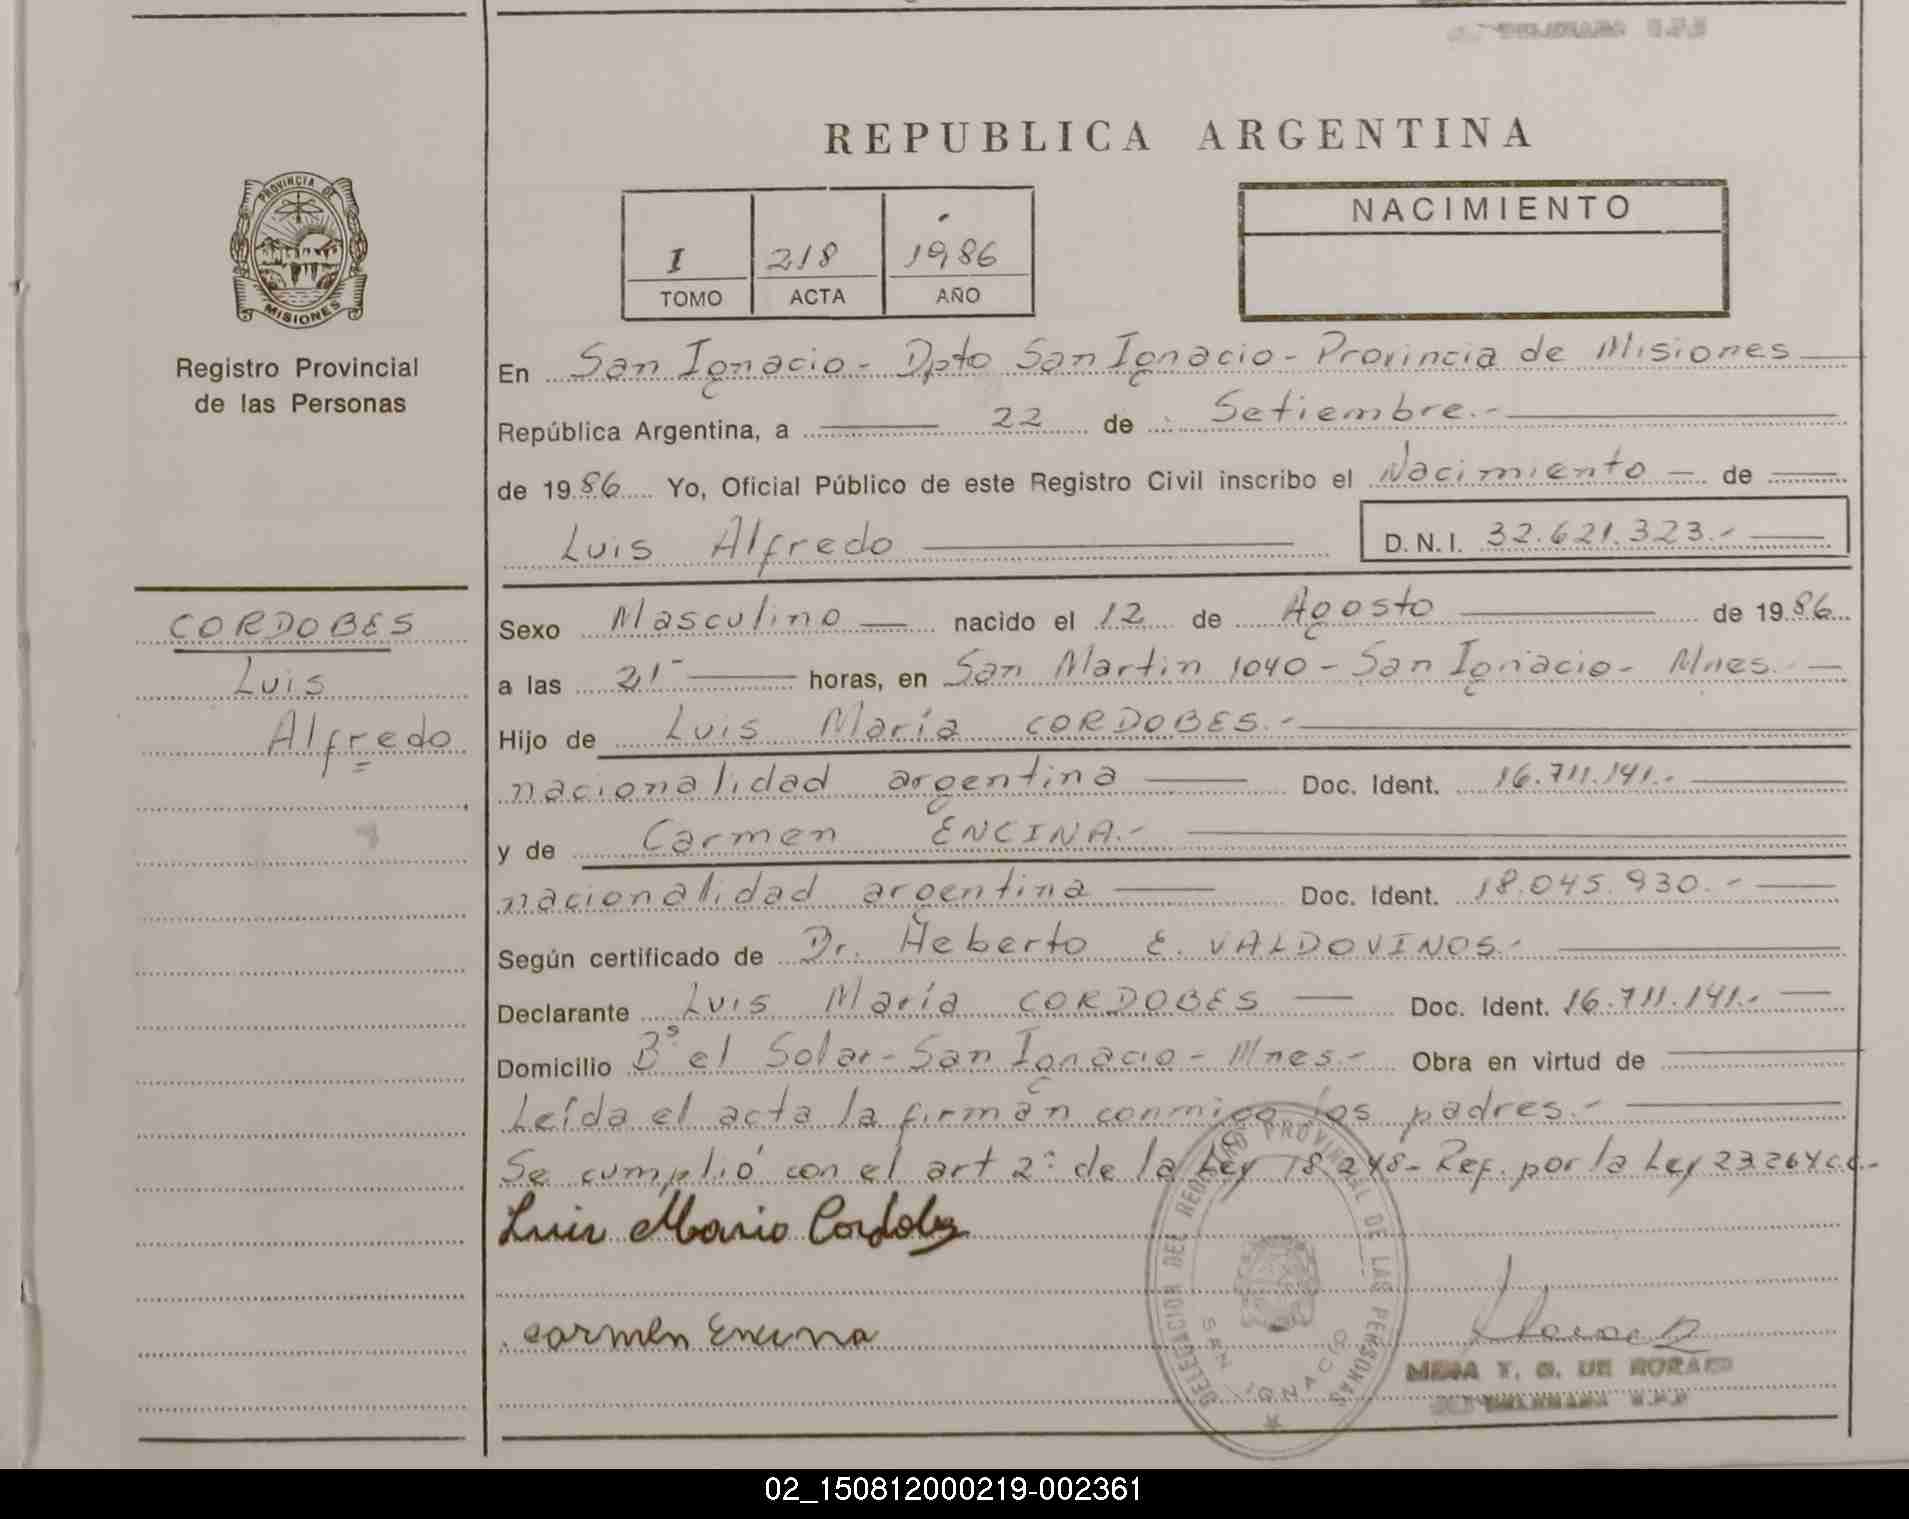 REPUBLICA ARGENTINA
PROVINCIA DE
MISIONES
Registro Provincial
de las Personas
I 218 1986
TOMO ACTA AÑO
NACIMIENTO
En San Ignacio - Dpto San Ignacio - Provincia de Misiones
República Argentina, a 22 de Setiembre.-
de 1986 Yo, Oficial Público de este Registro Civil inscribo el Nacimiento - de
Luis Alfredo D.N.I. 32.621.323.-
CORDOBES
Luis
Alfredo
Sexo Masculino nacido el 12 de Agosto de 1986
a las 21- horas, en San Martin 1040 - San Ignacio - Mnes.-
Hijo de Luis María CORDOBES.-
nacionalidad argentina Doc. Ident. 16.711.141.-
y de Carmen ENCINA.-
nacionalidad argentina Doc. Ident. 18.045.930.-
Según certificado de Dr. Heberto E. VALDOVINOS.-
Declarante Luis María CORDOBES Doc. Ident. 16.711.141.-
Domicilio Bº el Solar - San Ignacio - Mnes.- Obra en virtud de
Leída el acta la firmán conmigo los padres.-
Se cumplió con el art 2º de la Ley 18.248 - Ref. por la Ley 23264
Luis Mario Cordobes
Carmen Encina
DELEGACION DEL REGISTRO PROVINCIAL DE LAS PERSONAS
SAN IGNACIO
02_150812000219-002361